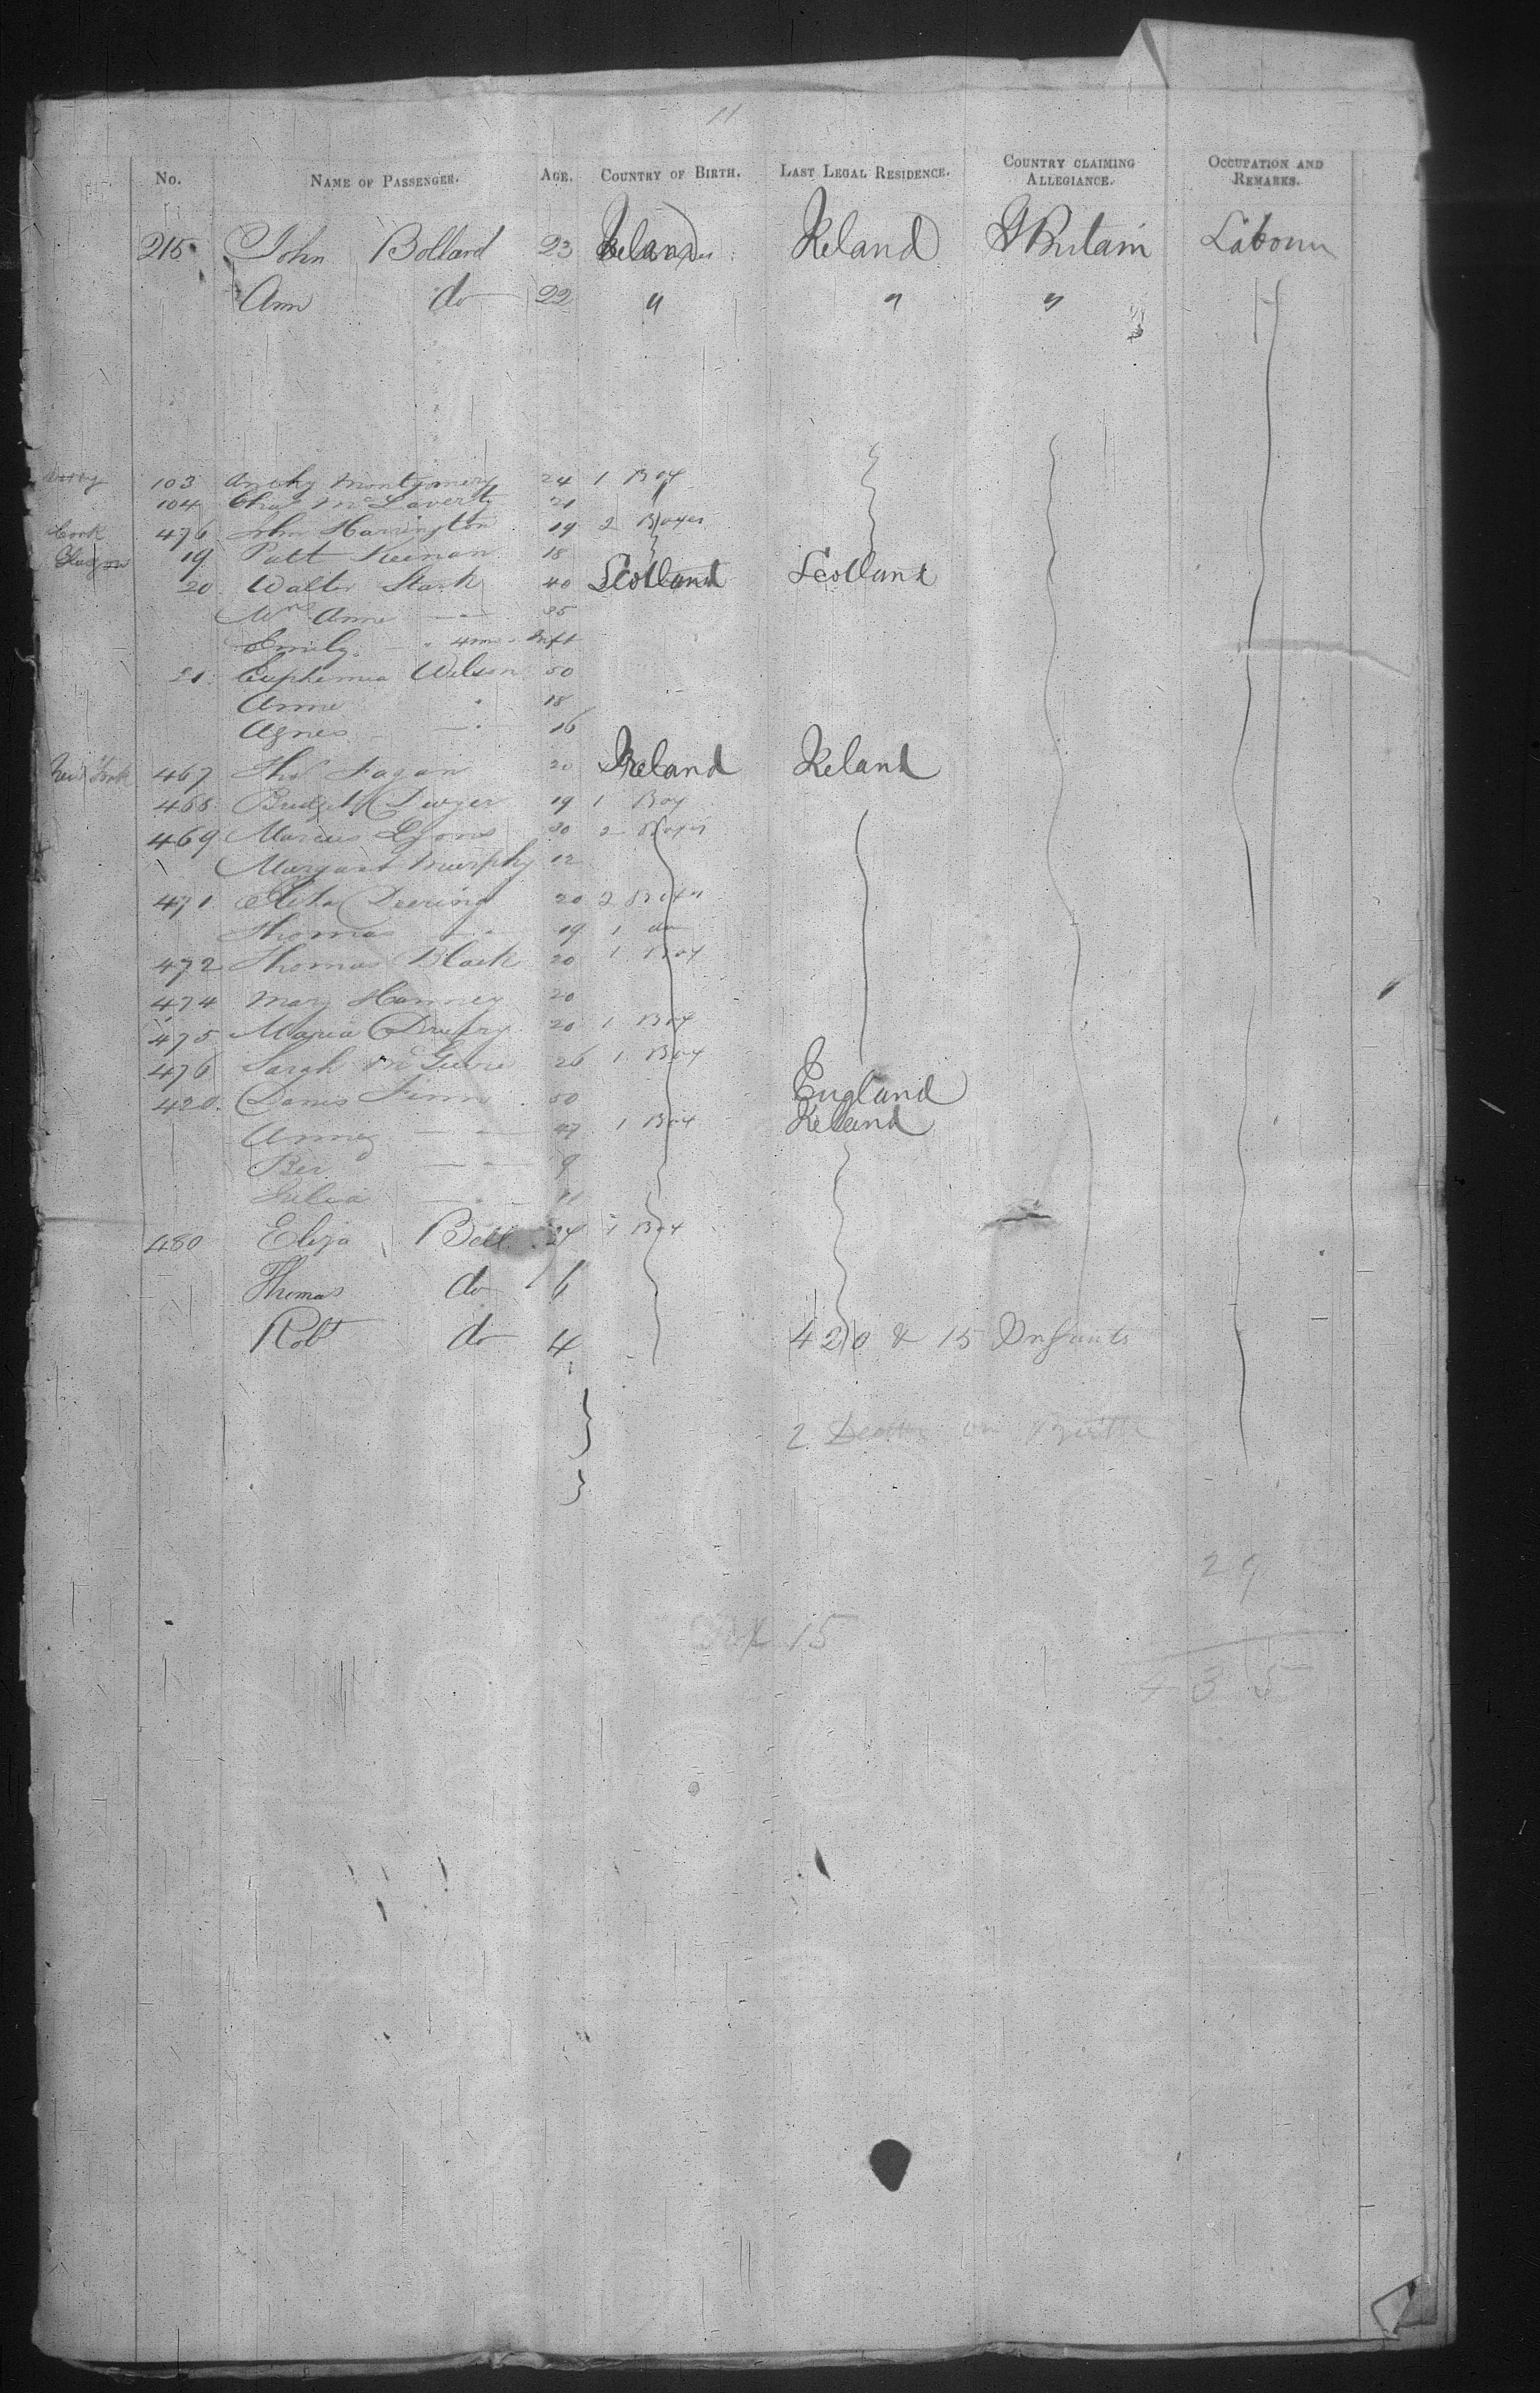 11
No. NAME OF PASSENGER. AGE. COUNTRY OF BIRTH. LAST LEGAL RESIDENCE. COUNTRY CLAIMING ALLEGIANCE. OCCUPATION AND REMARKS.
215 John Bollard 23 Ireland Ireland G Britain Labour
Ann do 22 " " "
Derry 103 Montgomery 24 1 Box
104 Chas McLaverty 21
Cork 476 John Harrington 19 2 Boxes
19 Patt Keenan 18
20 Walter Stark 40 Scotland Scotland
Mrs Anne 35
Emily 4 m Inft
21 Euphemia Wilson 50
Anne 18
Agnes 16
New York 467 Thos Fagan 20 Ireland Ireland
468 Bridget Dwyer 19 1 Box
469 Lyons 30 2 Boxes
Margaret Murphy 12
471 Deering 20 2 Boxes
Thomas 19 1 do
472 Thomas Black 20 1 Box
474 Mary 20
475 Maria 20 1 Box
476 Sarah McGuire 26 1 Box
420 Finn 50 England
47 1 Box Ireland
9
Julia 11
480 Eliza Bell 24 1 Box
Thomas do 6
Robt do 4 420 & 15 Infants
2
29
15
435